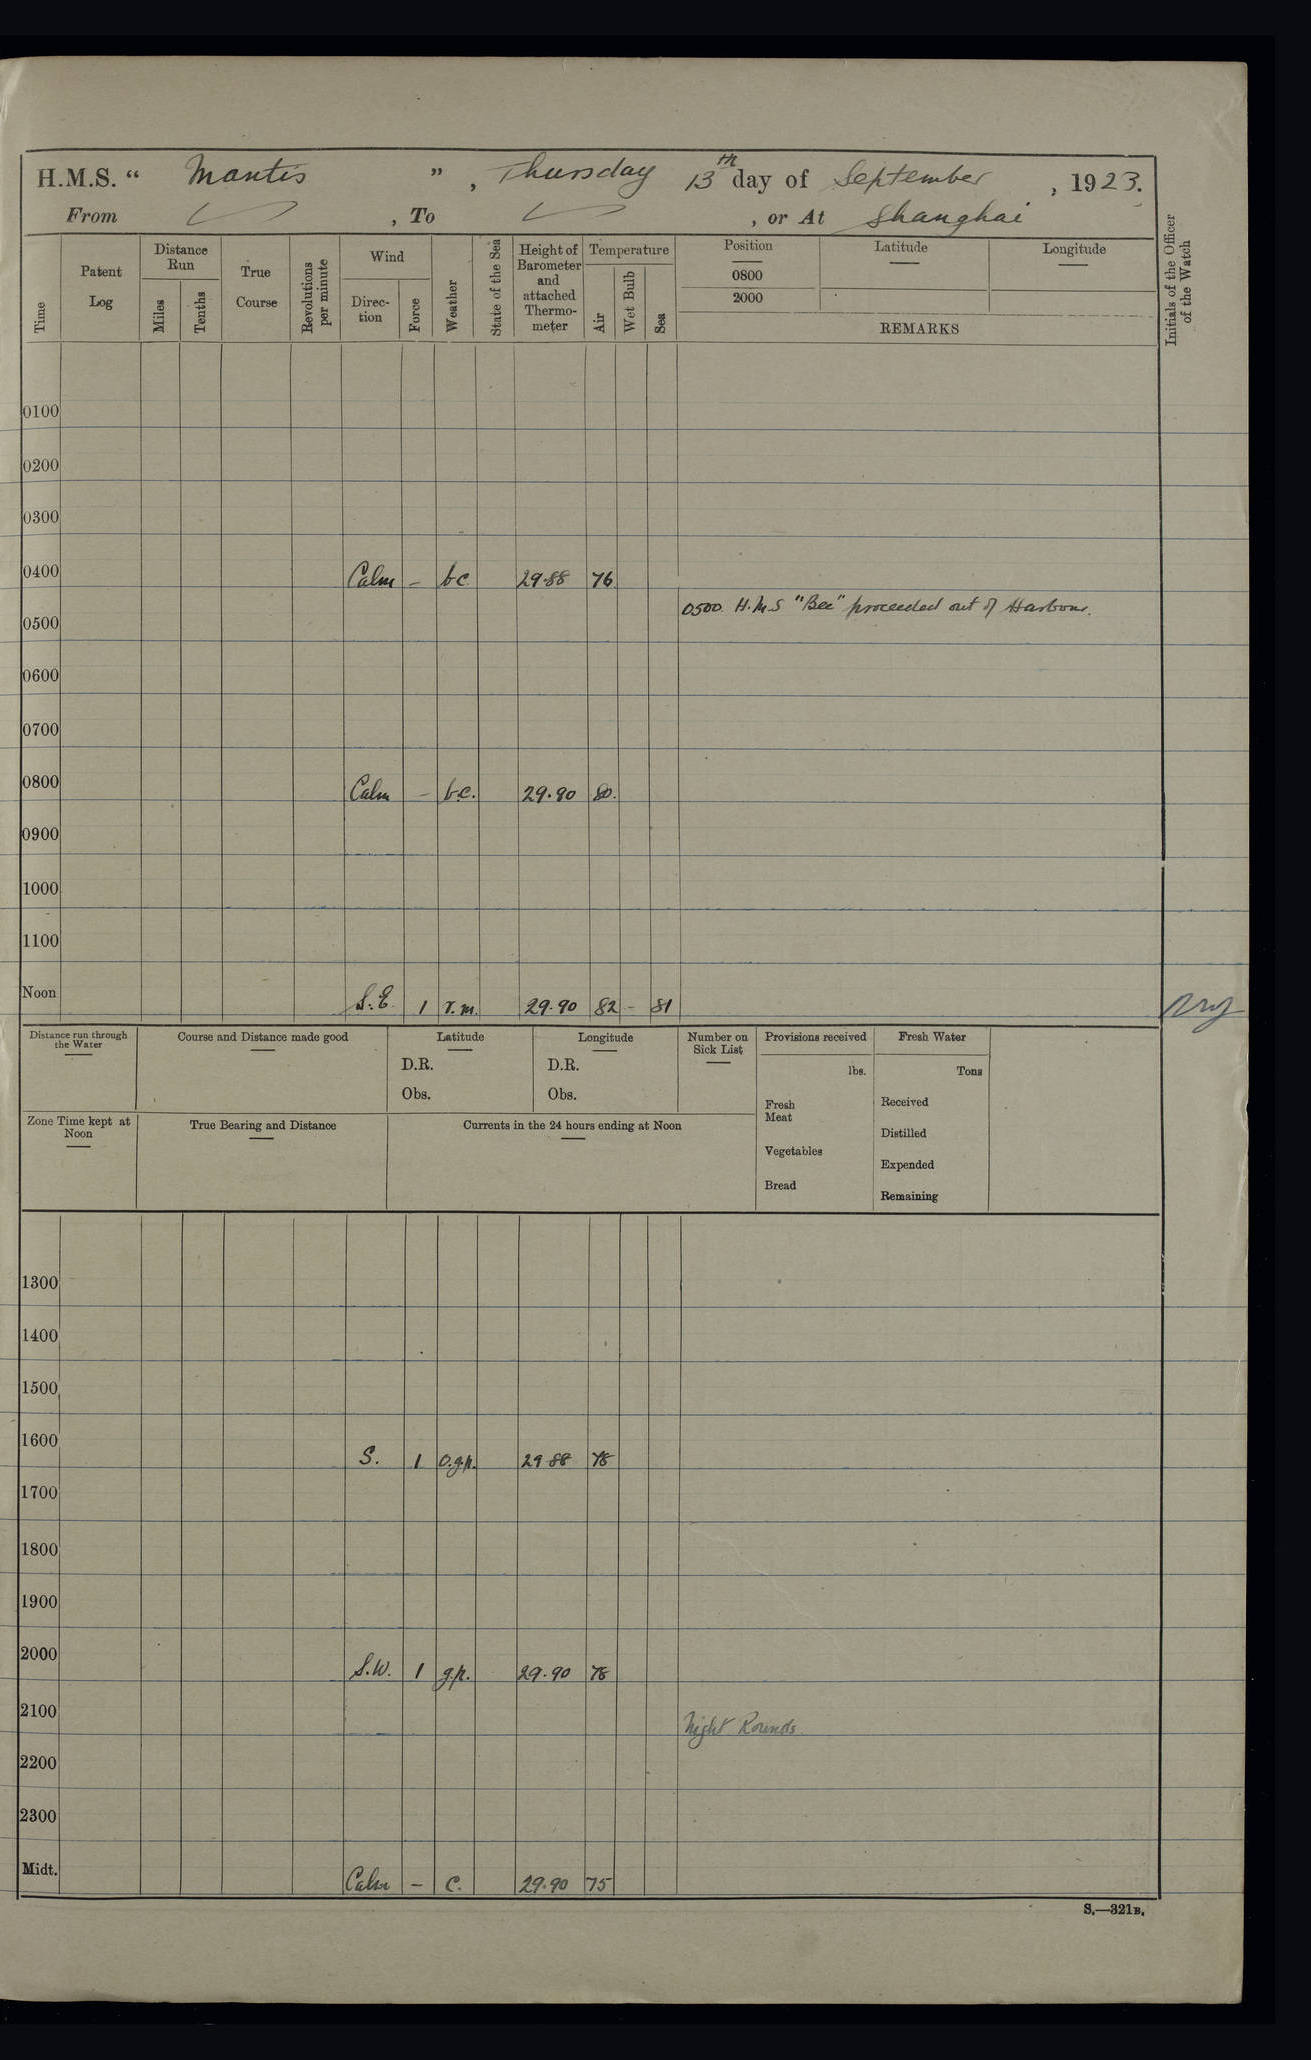 H.M.S. “ Mantis ” , Thursday 13th day of September , 1923.
From , To , or At Shanghai
Time
Patent Log
Distance Run
Miles
Tenths
True Course
Revolutions per minute
Wind
Direc-tion
Force
Weather
State of the Sea
Height of Barometer and attached Thermo-meter
Temperature
Air
Wet Bulb
Sea
Position
0800
2000
Latitude
Longitude
REMARKS
Initials of the Officer of the Watch
0100
0200
0300
0400 Calm – bc 29.88 76
0500. H.M.S "Bee" proceeded out of Harbour.
0500
0600
0700
0800 Calm – b.c. 29.90 80.
0900
1000
1100
Noon S.E. 1 r.m. 29.90 82 – 81
Distance run through the Water
Course and Distance made good
Latitude
D.R.
Obs.
Longitude
D.R.
Obs.
Number on Sick List
Provisions received
lbs.
Fresh Meat
Vegetables
Bread
Fresh Water
Tons
Received
Distilled
Expended
Remaining
Zone Time kept at Noon
True Bearing and Distance
Currents in the 24 hours ending at Noon
1300
1400
1500
1600 S. 1 o.g.p. 29 88 78
1700
1800
1900
2000 S.W. 1 g.p. 29.90 78
2100 Night Rounds
2200
2300
Midt. Calm – c. 29.90 75
S.—321B.